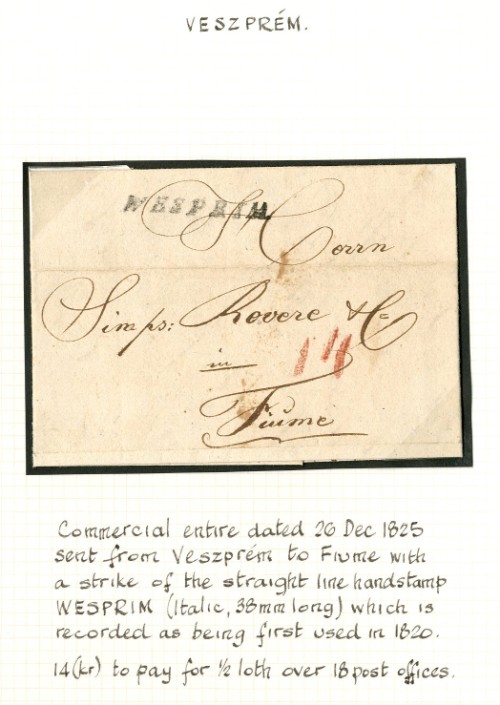 VESZPRÉM.
WESPRIM
Simps: Rovere & Cº
in
14
Fiume
Commercial entire dated 26 Dec 1825
sent from Veszprém to Fiume with
a strike of the straight line handstamp
WESPRIM (Italic, 38mm long) which is
recorded as being first used in 1820.
14(kr) to pay for ½ loth over 18 post offices.